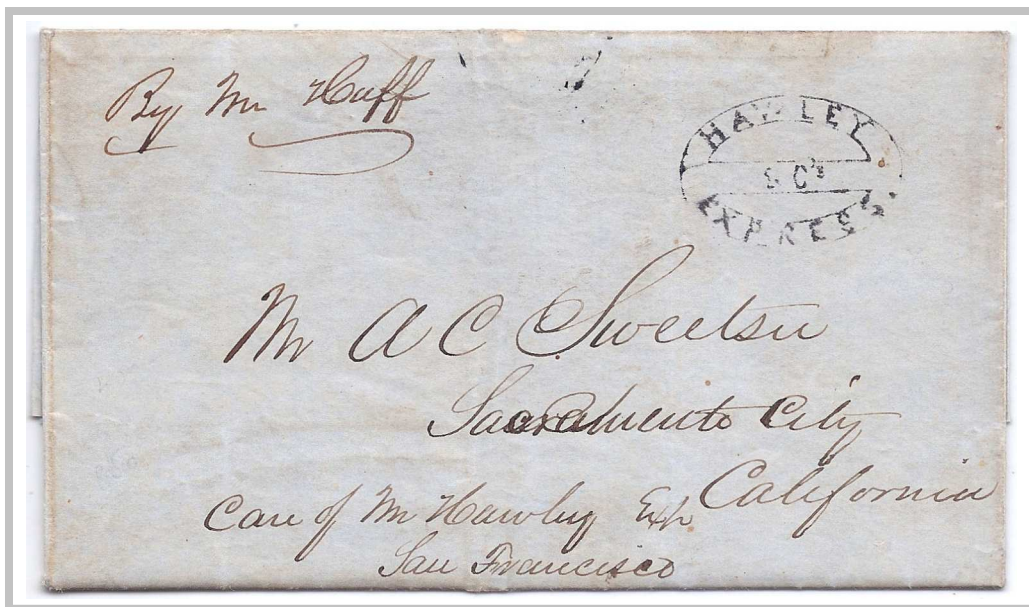 By Mr Huff
HAWLEY
& Co's
EXPRESS
Mr A C Sweetser
Sacramento City
California
Care of Mr Hawley Exp
San Francisco